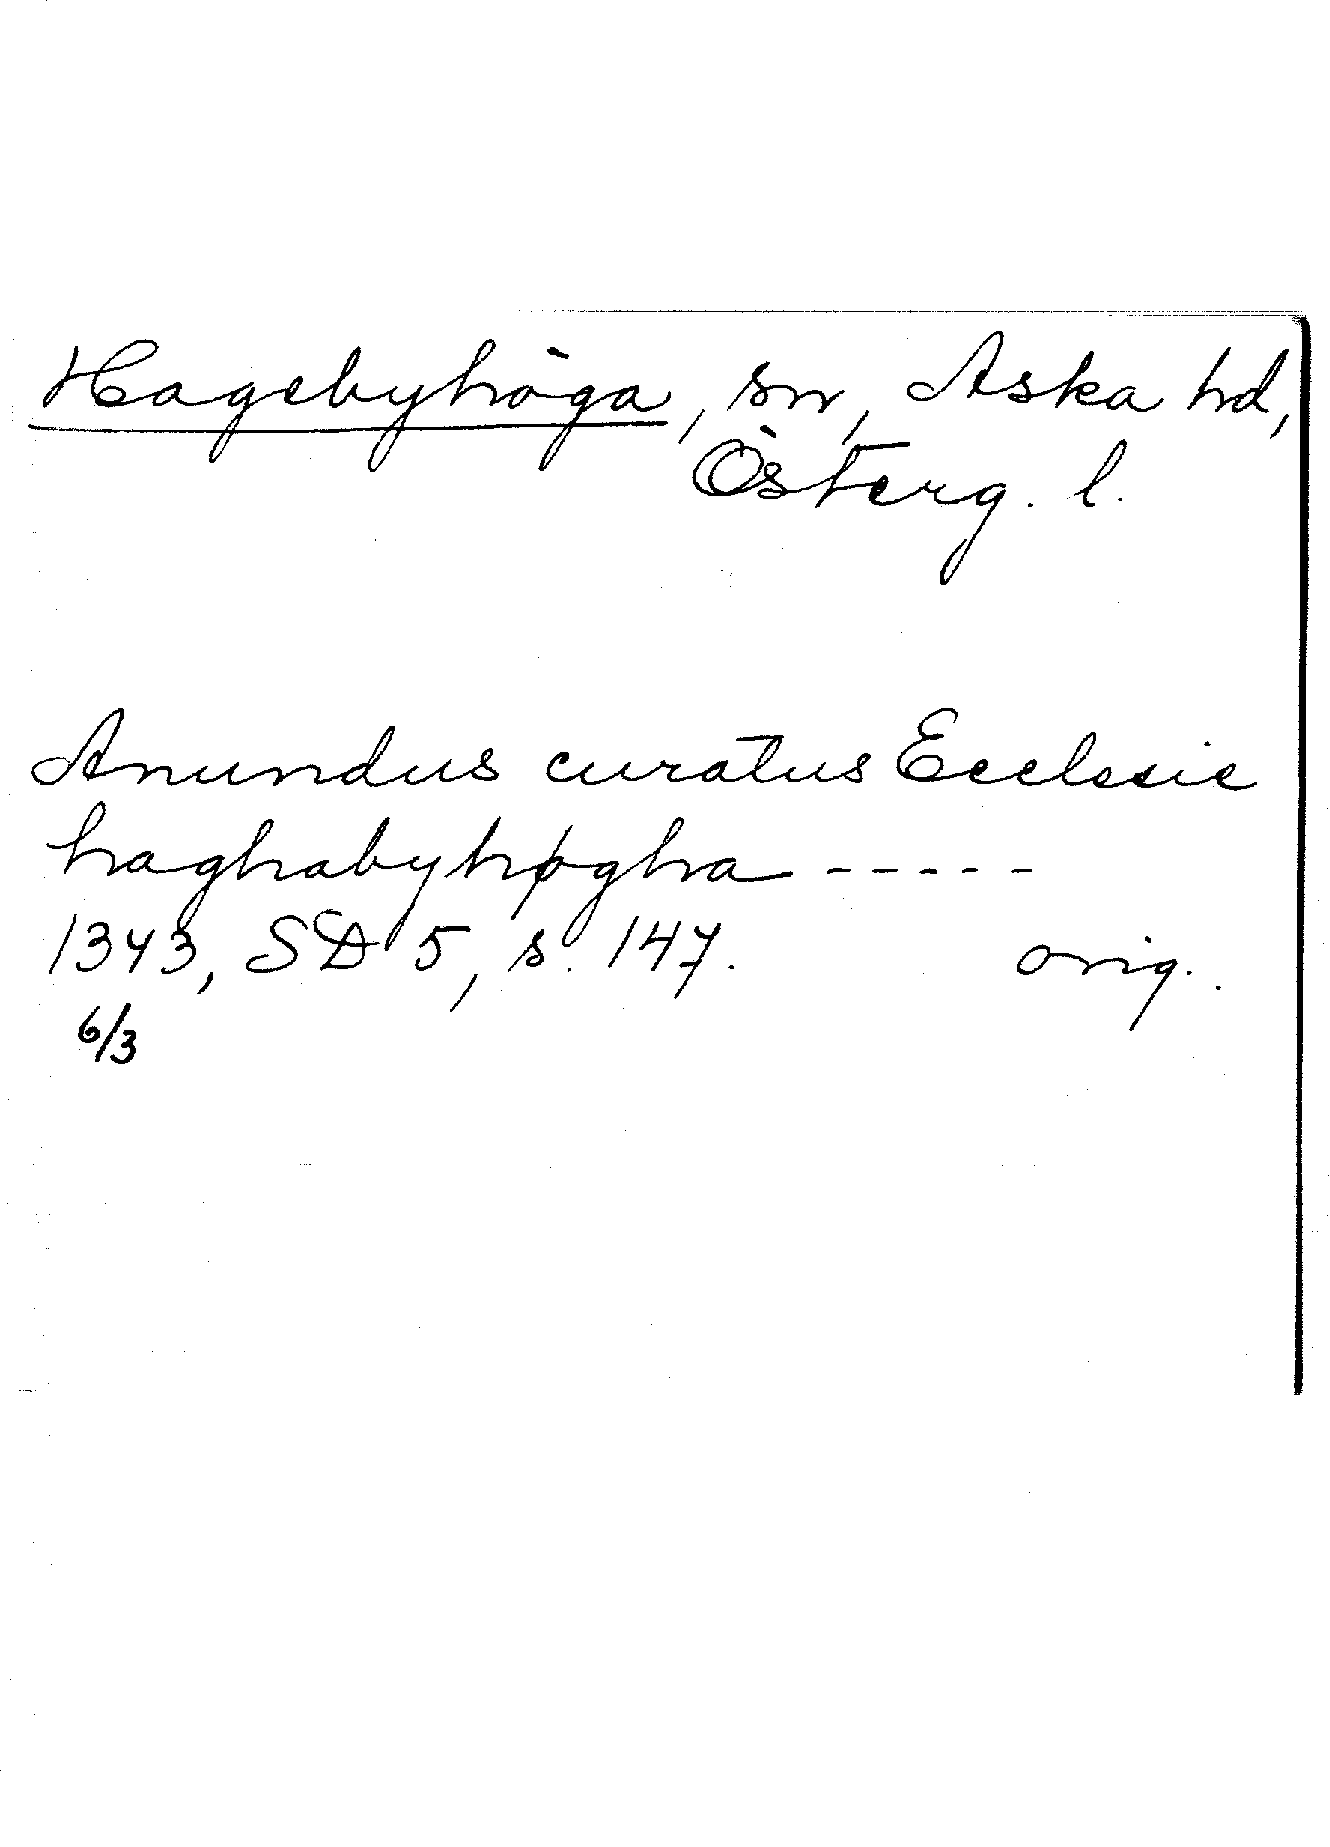 Hagebyhöga, sn, Aska hd,
Österg. l.
Anundus curatus Ecclesie
haghabyhøgha -----
1343, SD 5, s. 147. orig.
6/3